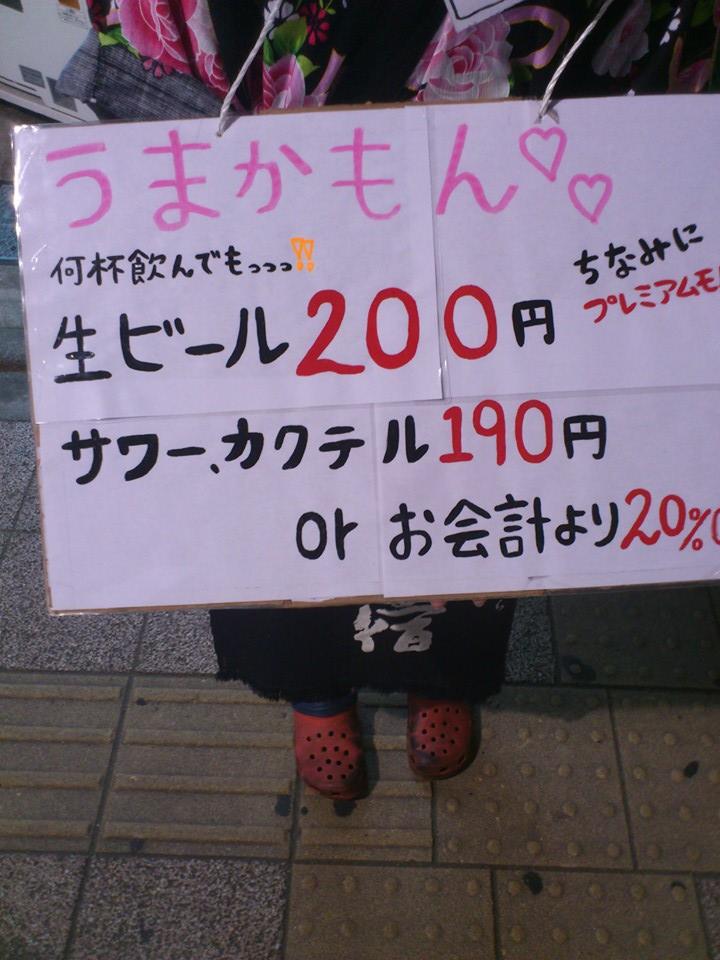 うまかもん♡♡
何杯飲んでもっっっ!!
生ビール200円
ちなみに
プレミアムモ
サワー、カクテル190円
or お会計より20%